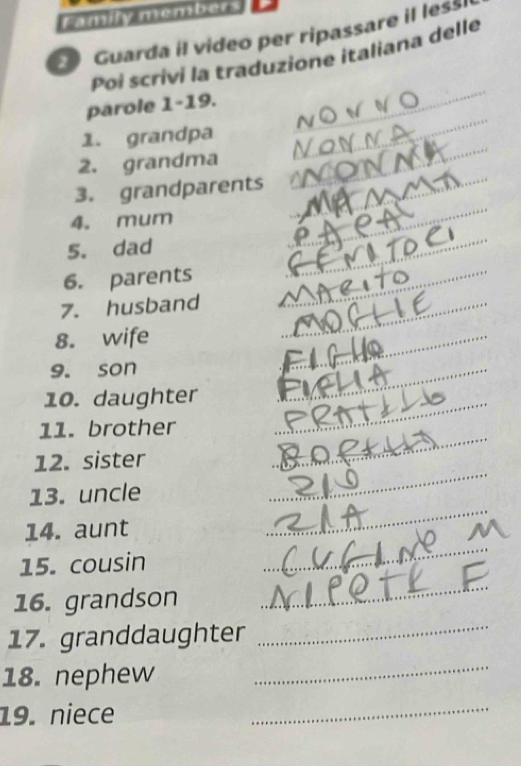 Family members
2 Guarda il video per ripassare il lessic
Poi scrivi la traduzione italiana delle
parole 1-19.
1. grandpa NONNO
2. grandma NONNA
3. grandparents NONNA
4. mum MAMMA
5. dad PAPA
6. parents GENITOCI
7. husband MARITO
8. wife MOGLIE
9. son FIGLIO
10. daughter FIGLIA
11. brother
12. sister
13. uncle ZIO
14. aunt ZIA
15. cousin CUGINO M
16. grandson NIPOTE F
17. granddaughter
18. nephew
19. niece